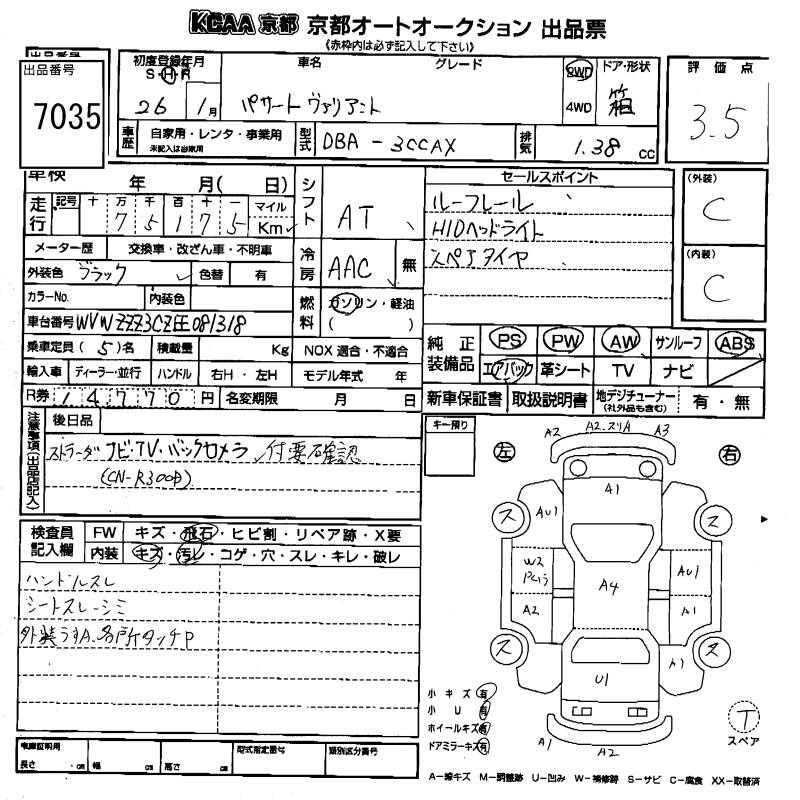 KCAA 京都 京都オートオークション 出品票
(赤枠内は必ず記入して下さい)
出品番号
7035
初度登録年月
S・H・R
26 1月
車名 グレード
パサート ヴァリアント
2WD
4WD
ドア・形状
箱
評価点
3.5
車歴 自家用・レンタ・事業用
未記入は自家用
型式 DBA-3CCAX
排気 1.38 CC
車検 年 月( 日)
走行 記号 十 万 千 百 十 一 マイル
7 5 1 7 5 Km
メーター歴 交換車・改ざん車・不明車
外装色 ブラック 色替 有
カラーNo. 内装色
車台番号 WVWZZZ3CZEE081318
乗車定員(5)名 積載量 Kg
輸入車 ディーラー・並行 ハンドル 右H・左H
R券 14770円 名変期限 月 日
シフト AT
冷房 AAC 無
燃料 ガソリン・軽油
( )
NOX適合・不適合
モデル年式 年
セールスポイント
ルーフレール
HIDヘッドライト
スペアタイヤ
(外装)
C
(内装)
C
純正装備品 PS PW AW サンルーフ ABS
エアバック 革シート TV ナビ
新車保証書 取扱説明書 地デジチューナー(社外品も含む) 有・無
注意事項(出品店記入)
後日品
ストラーダ ナビ・TV・バックカメラ 付要確認
(CN-R300D)
キー預り
検査員記入欄 FW キズ・飛石・ヒビ割・リペア跡・X要
内装 キズ・汚レ・コゲ・穴・スレ・キレ・破レ
ハンドルスレ
シートスレ・シミ
外装うすA、各所タッチP
車庫証明用
長さ cm 幅 cm 高さ cm
型式指定番号 類別区分番号
左 右
A2 A2.スリA A3
A1
ス AU1 ス
W2
A4 AU1
A2 A1
ス A1 ス
U1
A1 A2
小キズ 有
小U 有
ホイールキズ 有
ドアミラーキズ 有
T
スペア
A-線キズ M-調整跡 U-凹み W-補修跡 S-サビ C-腐食 XX-取替済